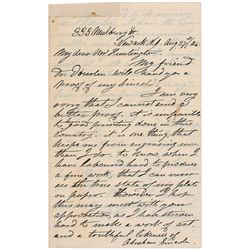 Newark N.J. Aug 27/86
My dear Mr. Huntington
My friend
Dr. will hand you a
proof of my Lincoln
I am very
sorry that I cannot send a
better proof. It is impossible
to get good printing done in this
Country. it is one thing that
keeps me from engraving more
than I do. to know after I
have labored hard to produce
a fine work, that I can never
see the true state of my plate
on paper. However I hope
this may meet with your
approbation, as I have striven
hard to make a work of art,
and a truthful likeness of
Abraham Lincoln.